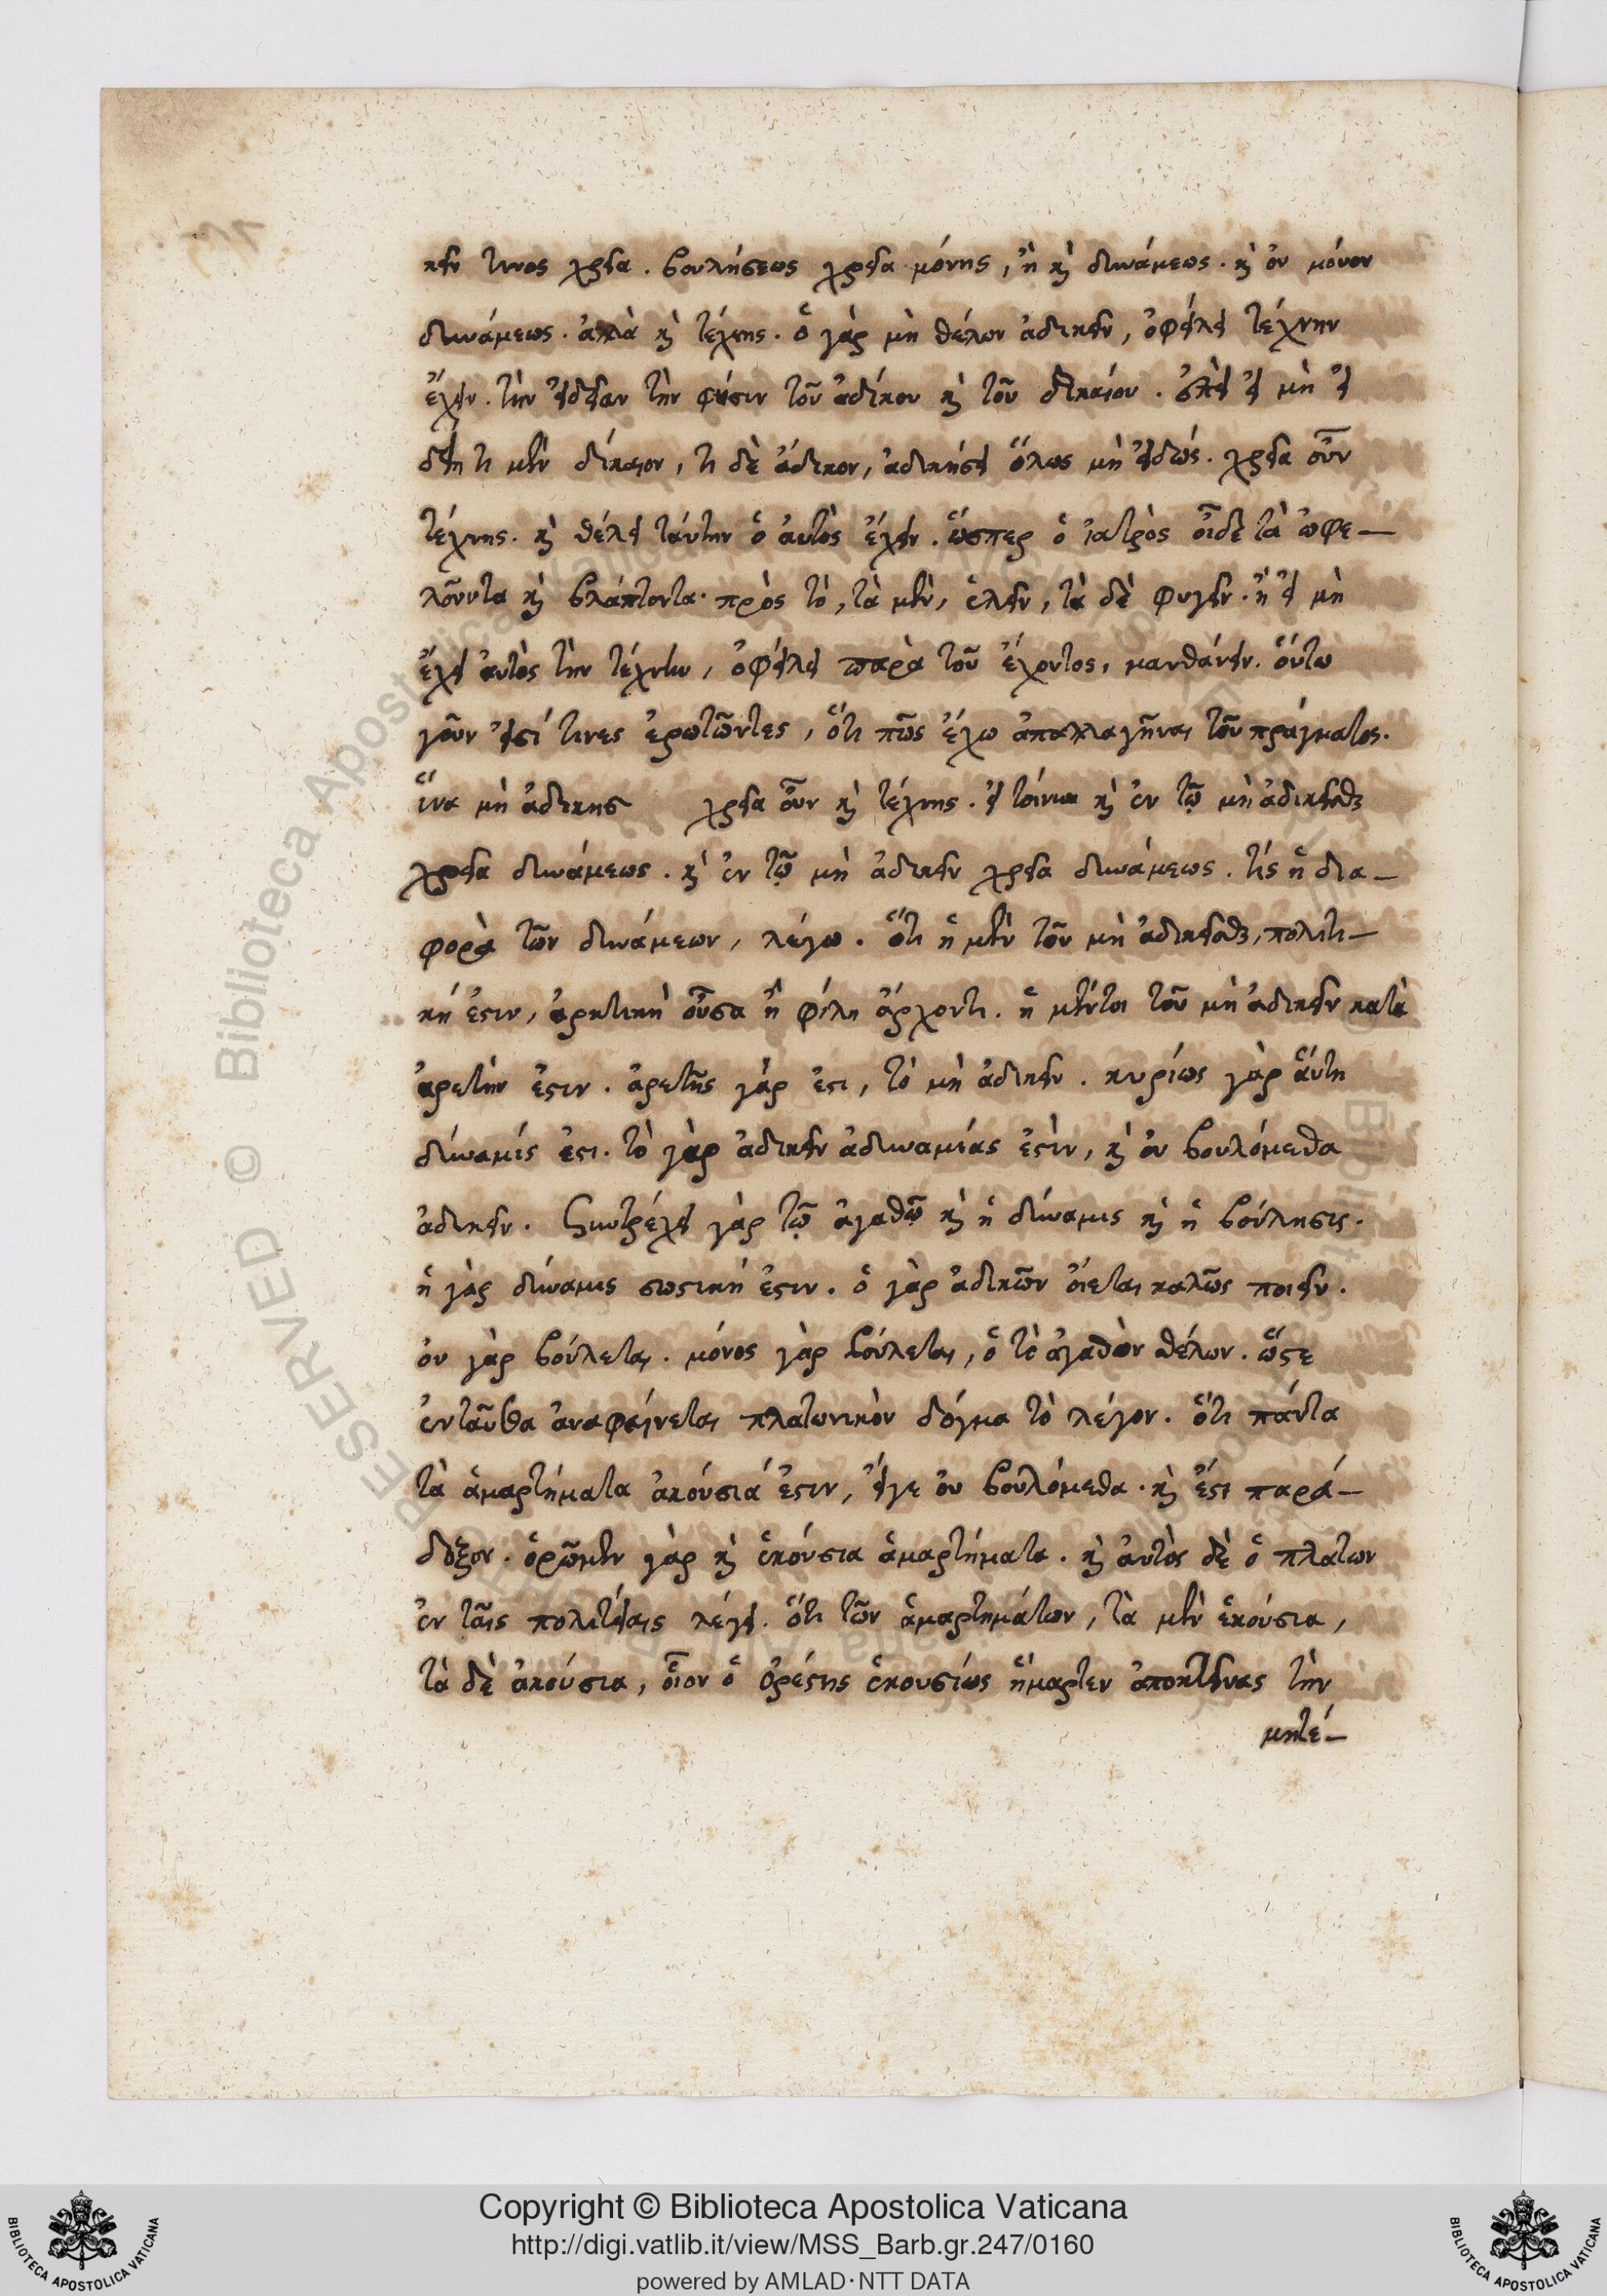 κεῖν τινος χρεία. βουλήσεως χρεία μόνης, ἢ καὶ δυνάμεως. καὶ οὐ μόνον
δυνάμεως. ἀλλὰ καὶ τέχνης. ὁ γὰρ μὴ θέλων ἀδικεῖν, ὀφείλει τέχνην
ἔχειν. τὴν εἰδεῖαν τὴν φύσιν τοῦ ἀδίκου καὶ τοῦ δικαίου. ἐπεὶ εἰ μὴ εἰ
δείη τι μὲν δίκαιον, τι δὲ ἄδικον, ἀδικήσει ὅλως μὴ εἰδώς. χρεία οὖν
τέχνης. καὶ θέλει ταύτην ὁ αὐτὸς ἔχειν. ὥσπερ ὁ ἰατρὸς οἶδε τὰ ὠφε–
λοῦντα καὶ βλάπτοντα. πρὸς τὸ, τὰ μὲν, ἑλεῖν, τὰ δὲ φυγεῖν. ἢ εἰ μὴ
ἔχει αὐτὸς τὴν τέχνην, ὀφείλει παρὰ τοῦ ἔχοντος, μανθάνειν. οὕτω
γοῦν εἰσί τινες ἐρωτῶντες, ὅτι πῶς ἔχω ἀπαλλαγῆναι τοῦ πράγματος.
ἵνα μὴ ἀδικης χρεία οὖν καὶ τέχνης. εἰ τοίνυν καὶ ἐν τῷ μὴ ἀδικεῖσθαι
χρεία δυνάμεως. καὶ ἐν τῷ μὴ ἀδικεῖν χρεία δυνάμεως. τίς ἡ δια–
φορὰ τῶν δυνάμεων, λέγω. ὅτι ἡ μὲν τοῦ μὴ ἀδικεῖσθαι, πολιτι–
κή ἐστιν, ἀρκτικὴ οὖσα ἢ φίλη ἄρχοντι. ἡ μέντοι τοῦ μὴ ἀδικεῖν κατὰ
ἀρετὴν ἐστιν. ἀρετῆς γάρ ἐστι, τὸ μὴ ἀδικεῖν. κυρίως γὰρ αὕτη
δύναμίς ἐστι. τὸ γὰρ ἀδικεῖν ἀδυναμίας ἐστὶν, καὶ οὐ βουλόμεθα
ἀδικεῖν. συντρέχει γὰρ τῷ ἀγαθῷ καὶ ἡ δύναμις καὶ ἡ βούλησις.
ἡ γὰρ δύναμις σωστική ἐστιν. ὁ γὰρ ἀδικῶν οἴεται καλῶς ποιεῖν.
οὐ γὰρ βούλεται. μόνος γὰρ βούλεται, ὁ τὸ ἀγαθὸν θέλων. ὥστε
ἐνταῦθα ἀναφαίνεται πλατωνικὸν δόγμα τὸ λέγον. ὅτι πάντα
τὰ ἁμαρτήματα ἀκούσιά ἐστιν, εἴγε οὐ βουλόμεθα. καὶ ἔστι παρά–
δοξον. ὁρῶμεν γὰρ καὶ ἑκούσια ἁμαρτήματα. καὶ αὐτὸς δὲ ὁ πλάτων
ἐν ταῖς πολιτείαις λέγει. ὅτι τῶν ἁμαρτημάτων, τὰ μὲν ἑκούσια,
τὰ δὲ ἀκούσια, οἷον ὁ ὀρέστης ἑκουσίως ἥμαρτεν ἀποκτείνας τὴν
μητέ–
Copyright © Biblioteca Apostolica Vaticana
http://digi.vatlib.it/view/MSS_Barb.gr.247/0160
powered by AMLAD·NTT DATA